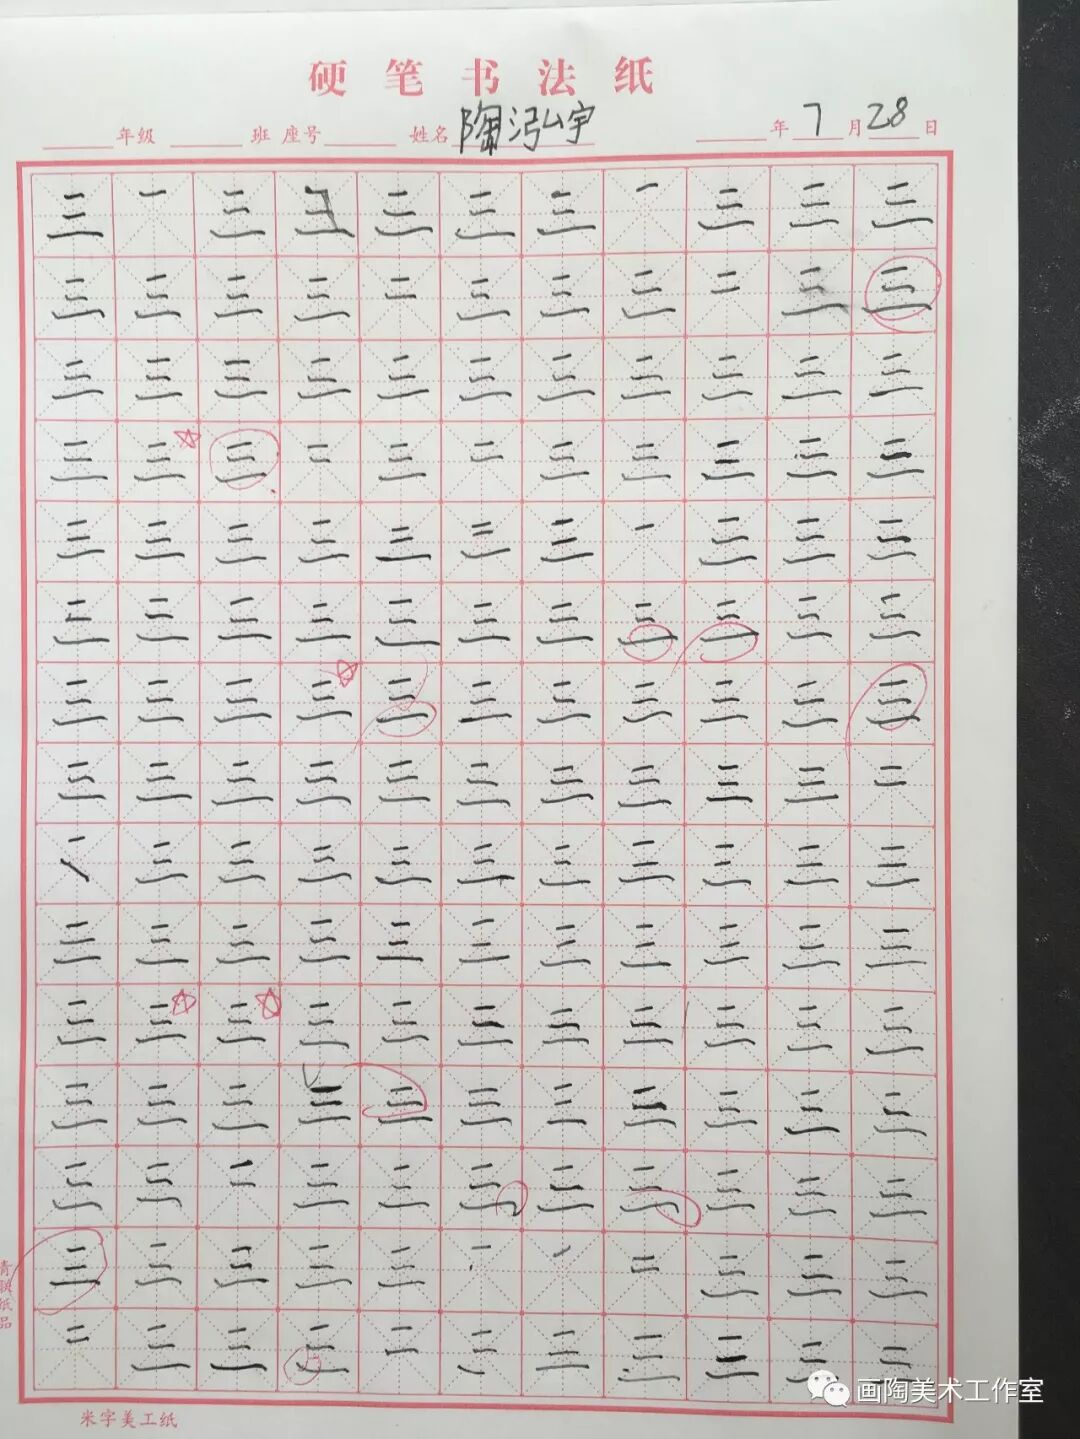 硬笔书法纸
年级 班 座号 姓名 陶泓宇 年 7 月 28 日
三 一 三 三 三 三 三 一 三 三 三
三 三 三 三 二 三 三 三 二 三 三
三 三 三 三 三 三 三 三 三 三 三
三 三 三 二 三 二 三 三 三 三 三
三 三 三 三 三 三 三 一 三 三 三
三 三 三 三 三 三 三 三 三 三 三
三 三 三 三 三 三 三 三 三 三 三
三 三 三 三 三 三 三 三 三 三 二
三 三 三 三 三 三 三 三 三 三
三 三 三 三 三 三 三 三 三 三 三
三 三 三 三 三 三 三 三 三 三 三
三 三 三 三 三 三 三 三 三 三 三
三 三 二 三 三 三 三 三 三 三 三
三 三 三 三 三 二 三 三 三
三 三 三 二 三 三 三 三 三 三
米字美工纸
画陶美术工作室